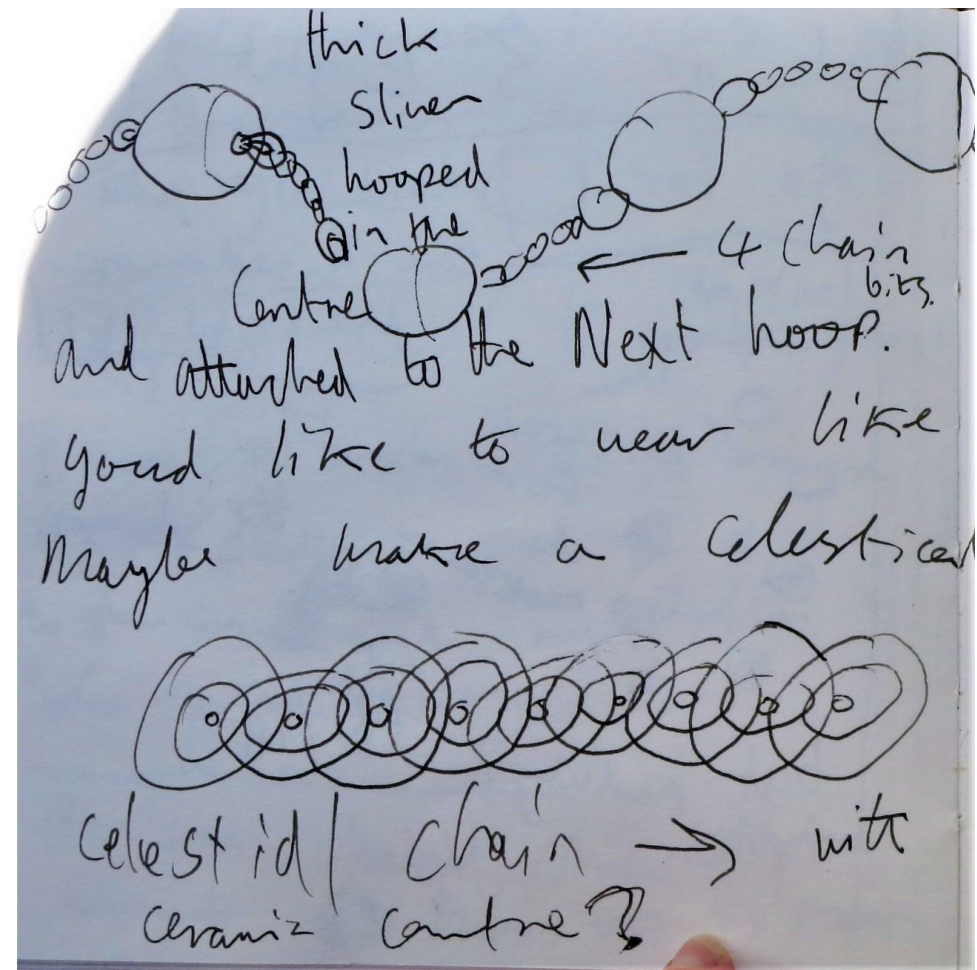 thick
sliver
hooped
in the
Centre
4 Chain
bits.
and attached to the Next hoop.
good like to wear like
Maybe make a Celestical
Celestial Chain → with
ceramic centre?